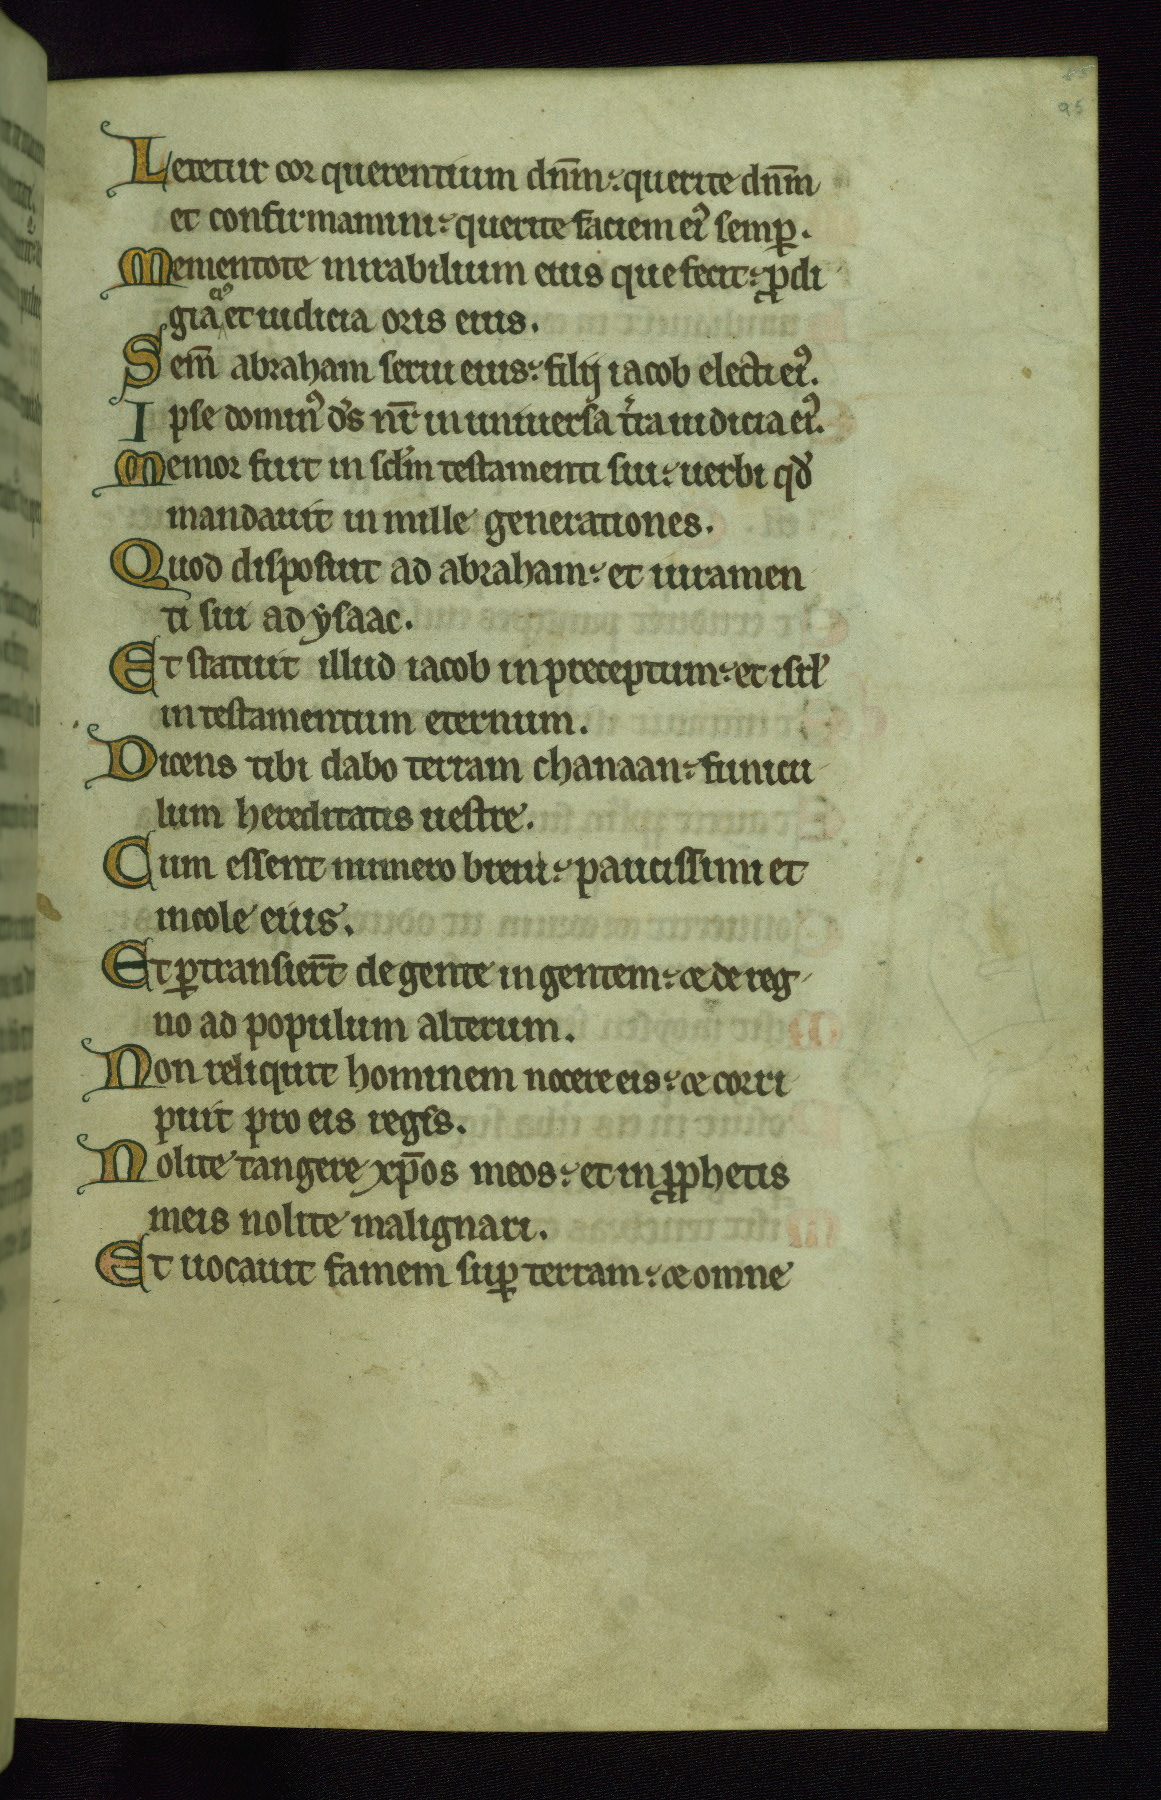 95
Letetur cor querentium dn̄m: querite dn̄m
et confirmamini: querite faciem eiꝰ semꝑ.
Mementote mirabilium eius que fecit: ꝓdi
gia eiꝰ et iudicia oris eius.
Sem̄ abraham serui eius: filij iacob electi eiꝰ.
Ipse dominꝰ ds̄ nr̄ in uniuersa tr̄a iudicia eiꝰ.
Memor fuit in sclm̄ testamenti sui: uerbi qd̄
mandauit in mille generationes.
Quod disposuit ad abraham: et iuramen
ti sui ad ysaac.
Et statuit illud iacob in preceptum: et isrl̄
in testamentum eternum.
Dicens tibi dabo terram chanaan: funicu
lum hereditatis uestre.
Cum essent numero breui: paucissimi et
incole eius.
Et ꝑtransier̄t de gente in gentem: & de reg
no ad populum alterum.
Non reliquit hominem nocere eis: & corri
puit pro eis reges.
Nolite tangere xp̄os meos: et in ꝓphetis
meis nolite malignari.
Et uocauit famem suꝑ terram: & omne